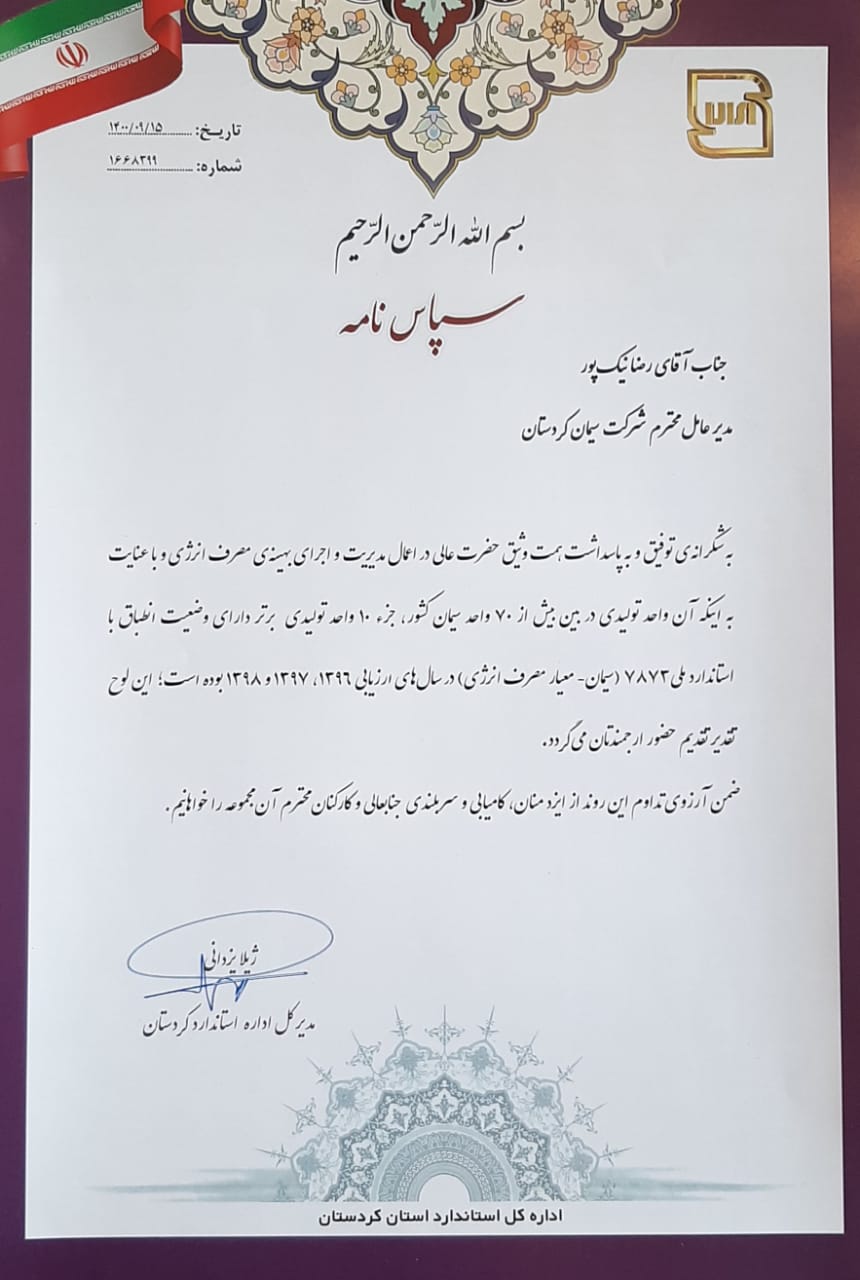 تاریخ: ۱۴۰۰/۰۹/۱۵
شماره: ۱۶۶۸۳۹۹
بسم الله الرّحمن الرّحیم
سپاس نامه
جناب آقای رضا نیک‌پور
مدیر عامل محترم شرکت سیمان کردستان
به شکرانه‌ی توفیق و به پاسداشت همت وثیق حضرت عالی در اعمال مدیریت و اجرای بهینه‌ی مصرف انرژی و با عنایت
به اینکه آن واحد تولیدی در بین بیش از ۷۰ واحد سیمان کشور، جزء ۱۰ واحد تولیدی برتر دارای وضعیت انطباق با
استاندارد ملی ۷۸۷۳ (سیمان- معیار مصرف انرژی) در سال‌های ارزیابی ۱۳۹۶، ۱۳۹۷ و ۱۳۹۸ بوده است؛ این لوح
تقدیر تقدیم حضور ارجمندتان می‌گردد.
ضمن آرزوی تداوم این روند از ایزد منان، کامیابی و سربلندی جنابعالی و کارکنان محترم آن مجموعه را خواهانیم.
ژیلا یزدانی
مدیر کل اداره استاندارد کردستان
اداره کل استاندارد استان کردستان